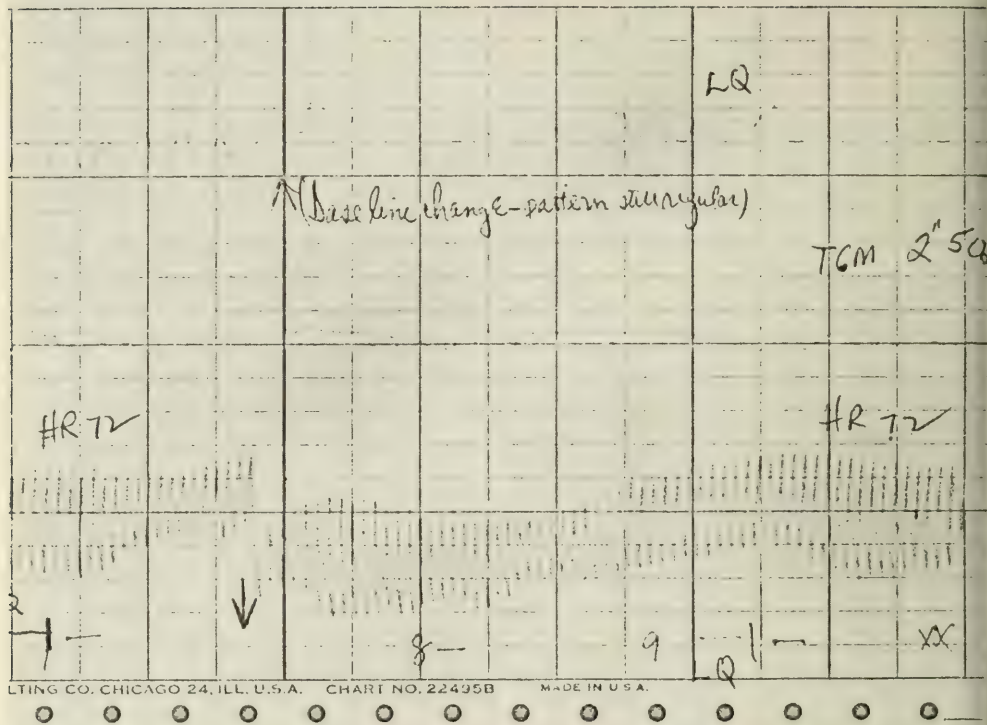 LQ
(Base line change - pattern still regular)
TGM 2" 5
HR 72
HR 72
2
8 —
9
XX
Q
LTING CO. CHICAGO 24, ILL. U.S.A. CHART NO. 22495B MADE IN U.S.A.